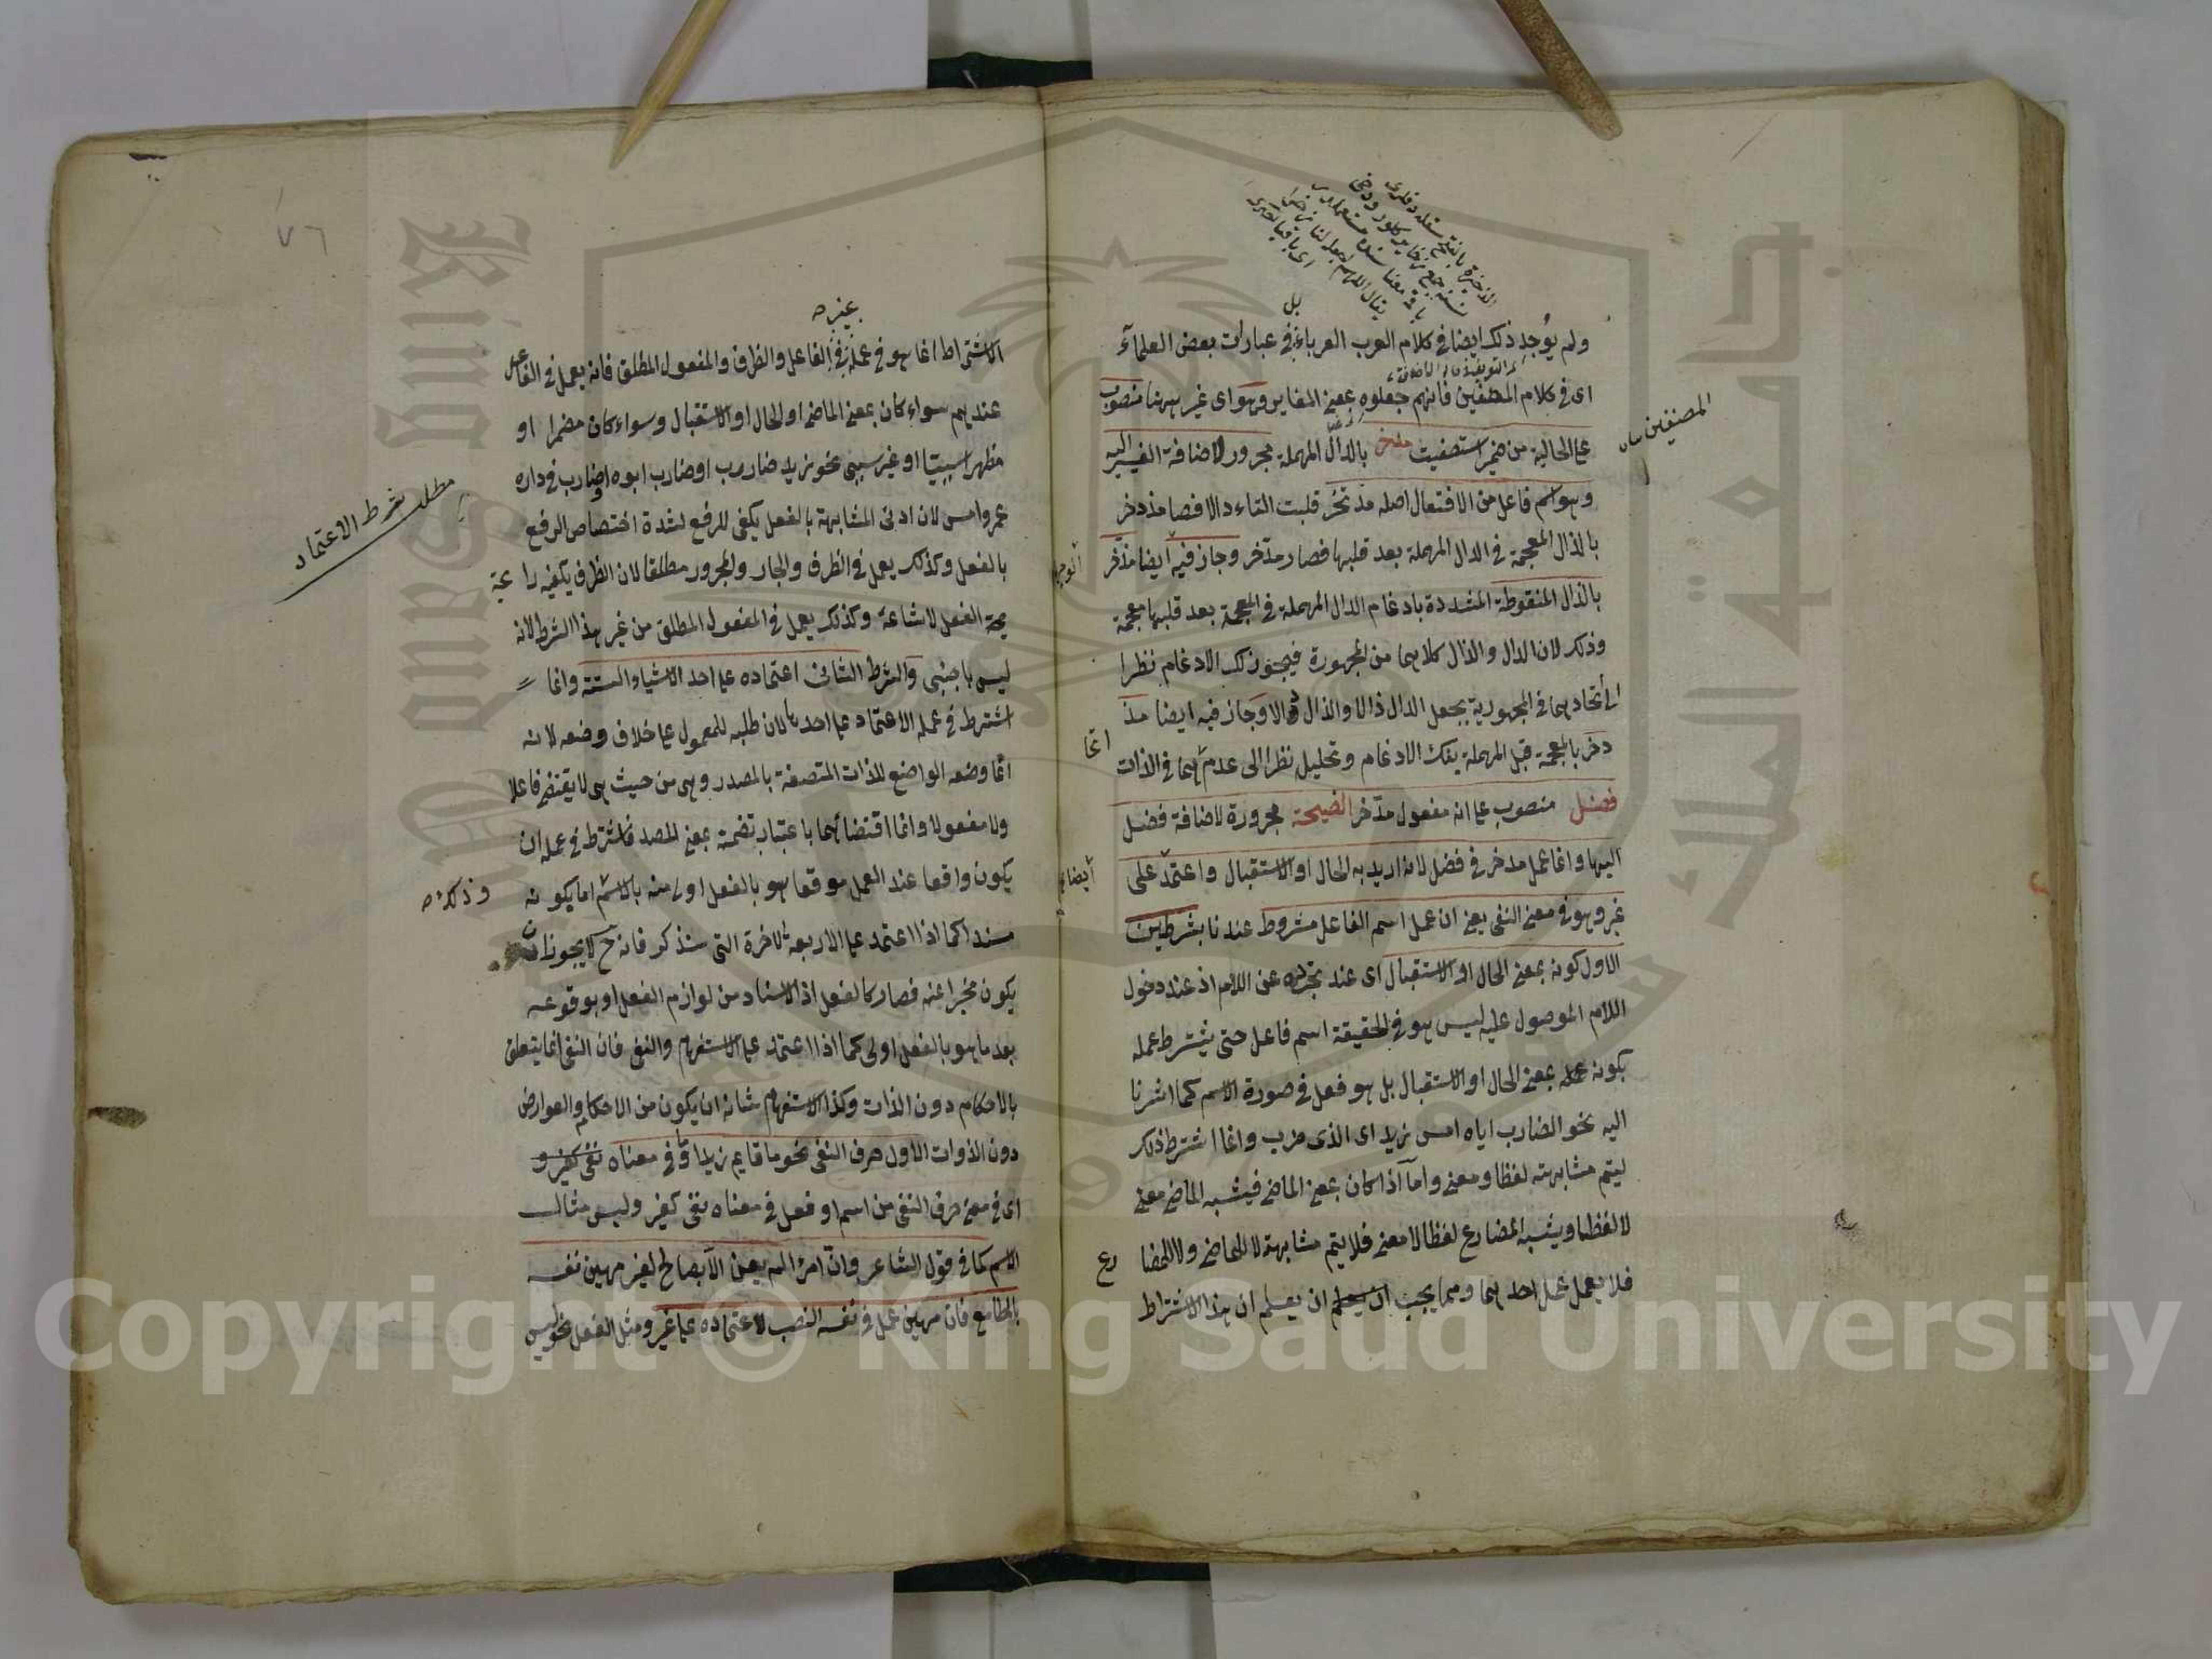 ولم يوجد ذلك ايضا في كلام العرب العرباء بل في عبارات بعض العلماء
اى في كلام المصنفين فانهم جعلوه بمعنى المغاير وهو اى غير ههنا منصوب
على الحالية من ضمير استصفيت مدخر بالدال المهملة مجرور لاضافة الغير اليه
وهو اسم فاعل من الافتعال اصله مذتخر قلبت التاء دالا فصا مذدخر
بالذال المعجمة في الدال المهملة بعد قلبها فصار مدّخر وجاز فيه ايضا مذّخر
بالذال المنقوطة المشددة بادغام الدال المهملة في المعجمة بعد قلبها معجمة
وذلك لان الدال والذال كلاهما من المجهورة فيجوز لك الادغام نظرا
الى اتحادهما في المجهورية بجعل الدال ذالا والذال دالا وجاز فيه ايضا مذ
دخر بالمعجمة قبل المهملة بفك الادغام وتحليل نظرا الى عدم اتحادهما في الذات
فضل منصوب على انه مفعول مدّخر النصيحة مجرورة لاضافة فضل
اليها وانما عمل مدخر في فضل لانه اريد به الحال او الاستقبال واعتمد على
غير وهو في معنى النفى يعنى ان عمل اسم الفاعل مشروط عندنا بشرطين
الاول كونه بمعنى الحال او الاستقبال اى عند تجرده عن اللام اذ عند دخول
اللام الموصول عليه ليس هو في الحقيقة اسم فاعل حتى يشترط عمله
بكونه عمله بمعنى الحال او الاستقبال بل هو فعل في صورة الاسم كما اشرنا
اليه نحو الضارب اياه امس زيد اى الذى ضرب وانما اشترط ذلك
ليتم مشابهته لفظا ومعنى واما اذا كان بمعنى الماضى فيشبه الماضى معنى
لا لفظا ويشبه المضارع لفظا لا معنى فلا يتم مشابهته لا للماضى ولا للمضا رع
فلا يعمل عمل احدهما ومما يجب ان يعلم ان يعلم ان هذا الاشتراط
المصنفين
ايضا
٧٦
الاشتراط انما هو في عمله في غير الفاعل والظرف والمفعول المطلق فانه يعمل في الفاعل
عندهم سواء كان بمعنى الماضى او الحال او الاستقبال وسواء كان مضمرا او
مظهرا سببيّا او غير سببى نحو زيد ضارب او ضارب ابوه او ضارب في داره
عمرو امس لان ادنى المشابهة بالفعل يكفى للرفع لشدة اختصاص الرفع
بالفعل وكذلك يعمل في الظرف والجار والمجرور مطلقا لان الظرف يكفيه را
يحة الفعل لاتساعه وكذلك يعمل في المفعول المطلق من غير هذا الشرط لانه
ليس باجنبى والشرط الثانى اعتماده على احد الاشياء الستة وانما
اشترط في عمله الاعتماد على احدها لان طلبه للمعمول على خلاف وضعه لانه
انما وضعه الواضع للذات المتصفة بالمصدر وهى من حيث هى لا يقتضى فاعلا
ولا مفعولا وانما اقتضائهما باعتبار تضمنه بمعنى المصدر فاشترط في عمله ان
يكون واقعا عند العمل موقعا هو بالفعل اولى منه بالاسم اما بكونه
مسندا كما اذا اعتمد على الاربعة الاخرة التى سنذكر فانه ح لا يجوز ان
يكون مخبرا عنه فصار كالفعل اذ الاسناد من لوازم الفعل او بوقوعه
بعد ما هو بالفعل اولى كما اذا اعتمد على الاستفهام والنفى فان النفى انما يتعلق
بالاحكام دون الذات وكذا الاستفهام شانه ان يكون من الاحكام والعوارض
دون الذوات الاول حرف النفى نحو ما قايم زيد او في معناه نفى كغير و
اى في معنى حرف النفى من اسم او فعل في معناه نفى كغير وليس مثال
الاسم كما في قول الشاعر وانّ امرأ لم يعن الا بصالح لغير مهين نفسه
بالمطامع فان مهين عمل في نفسه النصب لاعتماده على غير ومثل الفعل نحو ليس
وذلك
مطلب شرط الاعتماد
Copyright © King Saud University